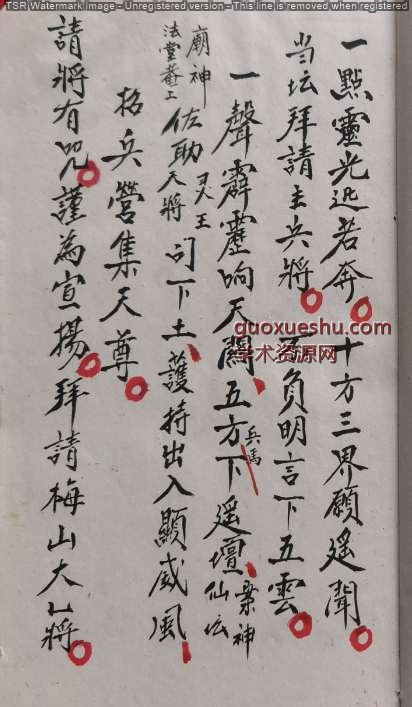 TSR Watermark Image - Unregistered version - This line is removed when registered
一點靈光迅若奔十方三界願遥聞
当坛拜請主兵將 負明言下五雲
一聲霹靂响天闊五方兵馬下遥壇案神仙坛
廟神法堂菴上佐助天將天王 下土護持出入顯威風
招兵營集天尊
請將有咒謹為宣揚拜請梅山大乙將
guoxueshu.com
学术资源网